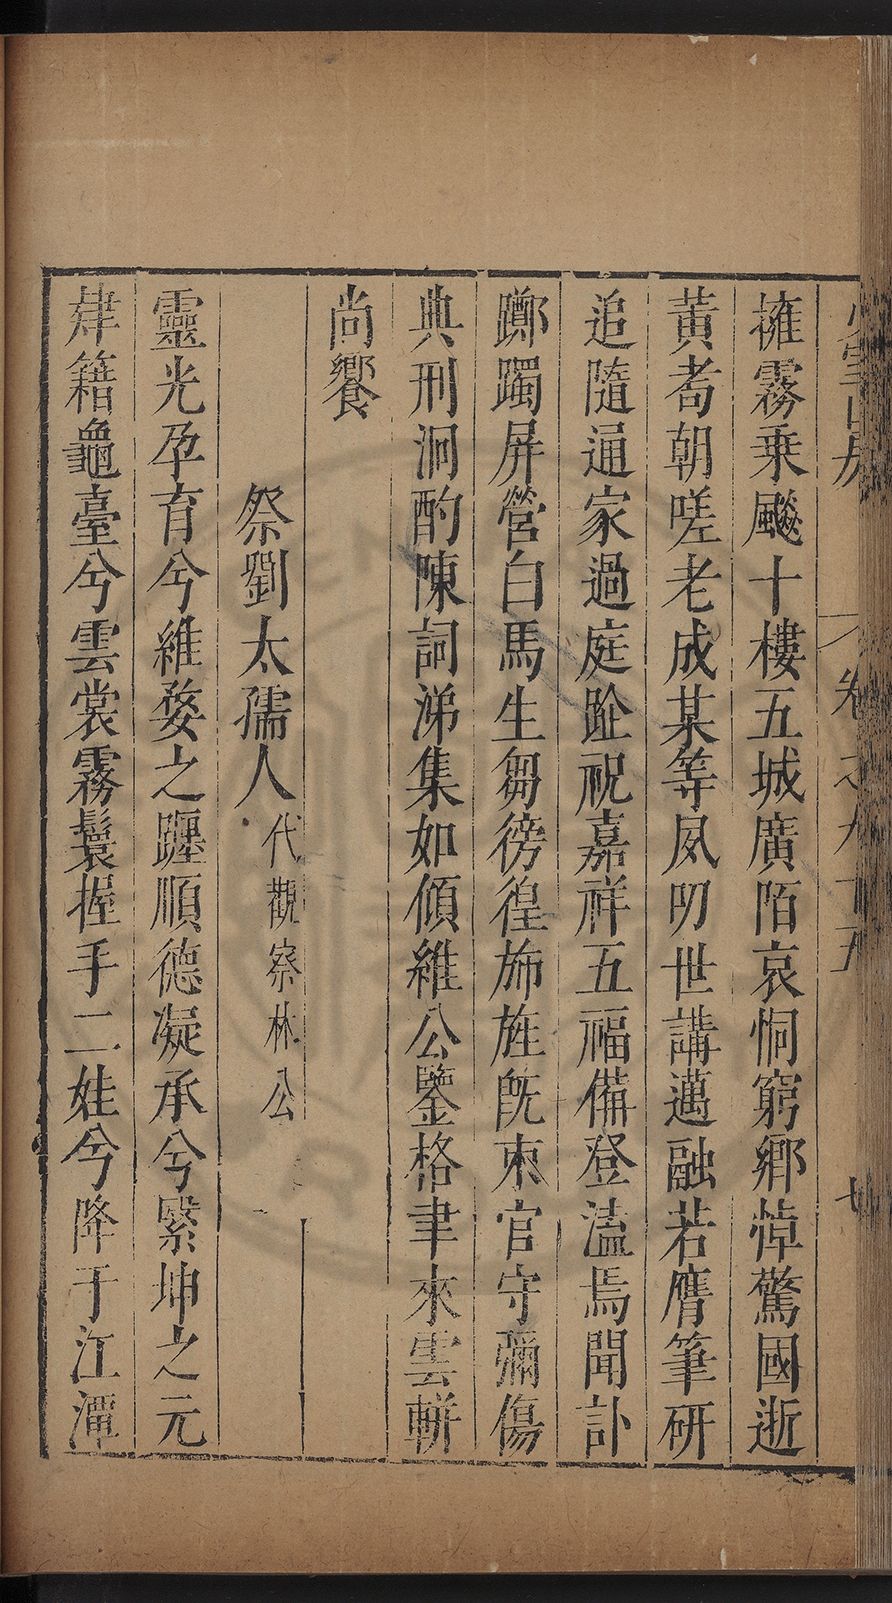 擁霧乗飈十樓五城廣陌哀恫窮鄉悼驚國逝
黃耇朝嗟老成某等夙叨世講邁融若膺筆研
追隨通家過庭趾祝嘉祥五福備登溘焉聞訃
躑躅屏營白馬生芻徬徨斾旌旣束官守彌傷
典刑泂酌陳詞涕集如傾維公鑒格聿來雲軿
尚饗
祭劉太孺人代觀察林公
靈光孕育兮維婺之躔順德凝承兮緊坤之元
肂籍龜臺兮雲裳霧鬟握手二娃兮降于江潭
卷之九十五
七